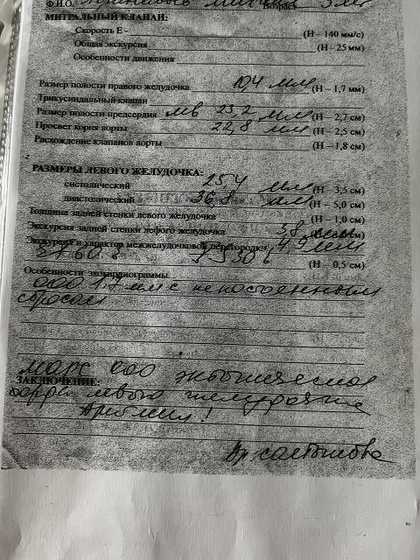 Ф.И.О. Возраст 5 лет
МИТРАЛЬНЫЙ КЛАПАН:
Скорость E - (Н – 140 мм/с)
Общая экскурсия (Н – 25 мм)
Особенности движения
Размер полости правого желудочка 10,4 мм (Н – 1,7 мм)
Трикуспидальный клапан
Размер полости предсердия лв 23,2 мм (Н – 2,7 см)
Просвет корня аорты 22,8 мм (Н – 2,5 см)
Расхождение клапанов аорты (Н – 1,8 см)
РАЗМЕРЫ ЛЕВОГО ЖЕЛУДОЧКА:
систолический 25,4 мм (Н – 3,5 см)
диастолический 36,8 мм (Н – 5,0 см)
Толщина задней стенки левого желудочка (Н – 1,0 см)
Экскурсия задней стенки левого желудочка 5,8 мм
Экскурсия и характер межжелудочковой перегородки 4,9 мм
(Н – 0,5 см)
Особенности эхокардиограммы
ооо 1,7 мм с непостоянным
сбросом
марс ооо
ЗАКЛЮЧЕНИЕ:
левого желудочка